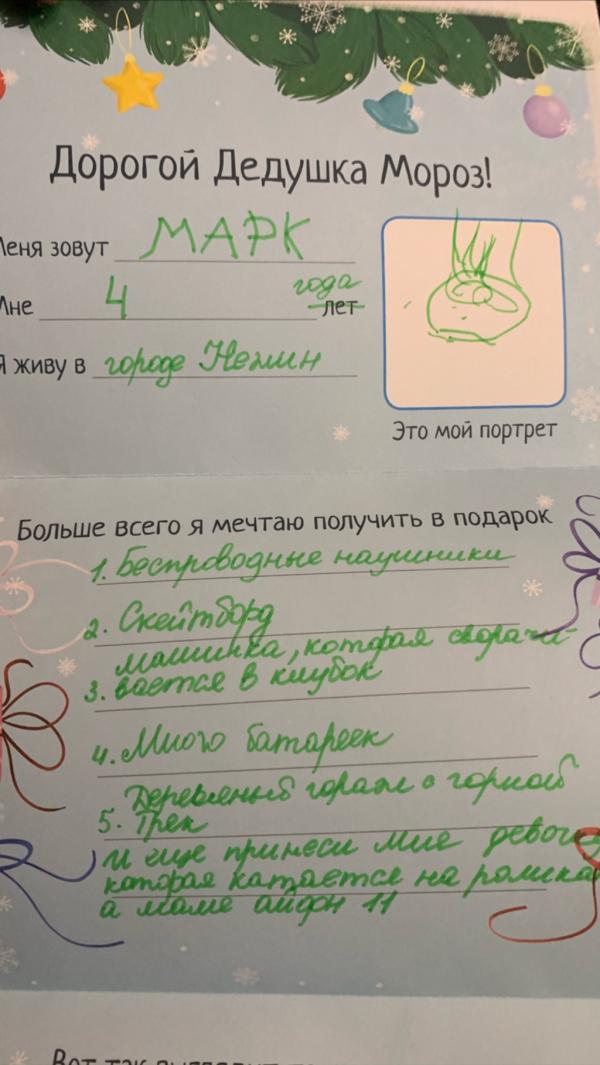 Дорогой Дедушка Мороз!
Меня зовут МАРК
Мне 4 года лет
Я живу в городе Нежин
Это мой портрет
Больше всего я мечтаю получить в подарок
1. Беспроводные наушники
2. Скейтборд
машинка, которая сворачи-
3. вается в клубок
4. Много батареек
Деревяный гараж с горкой
5. Трек
и еще принеси мне
которая катается на ролика
а маме айфон 11
Вот так